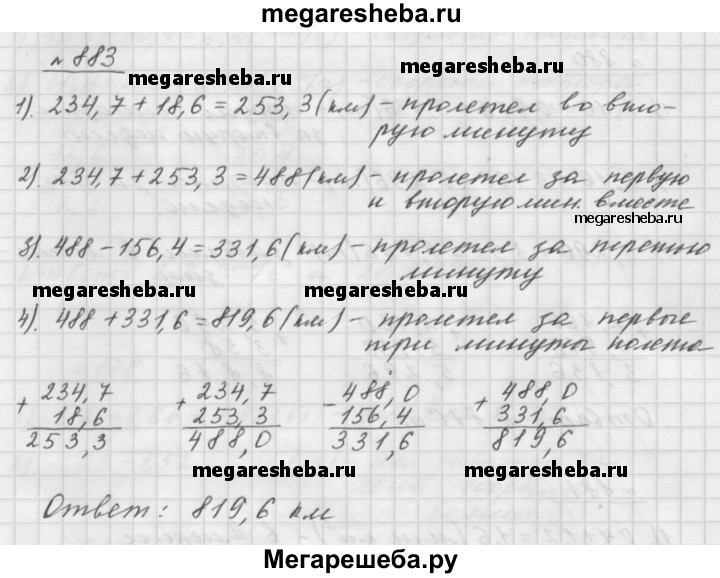 megaresheba.ru
№ 883
megaresheba.ru megaresheba.ru
1). 234,7 + 18,6 = 253,3 (км) – пролетел во вто-
рую минуту
2). 234,7 + 253,3 = 488 (км) – пролетел за первую
и вторую мин. вместе
megaresheba.ru
3). 488 – 156,4 = 331,6 (км) – пролетел за третью
минуту
megaresheba.ru megaresheba.ru
4). 488 + 331,6 = 819,6 (км) – пролетел за первые
три минуты полета
+ 234,7 + 234,7 – 488,0 + 488,0
18,6 253,3 156,4 331,6
253,3 488,0 331,6 819,6
megaresheba.ru megaresheba.ru
Ответ: 819,6 км
Мегарешеба.ру